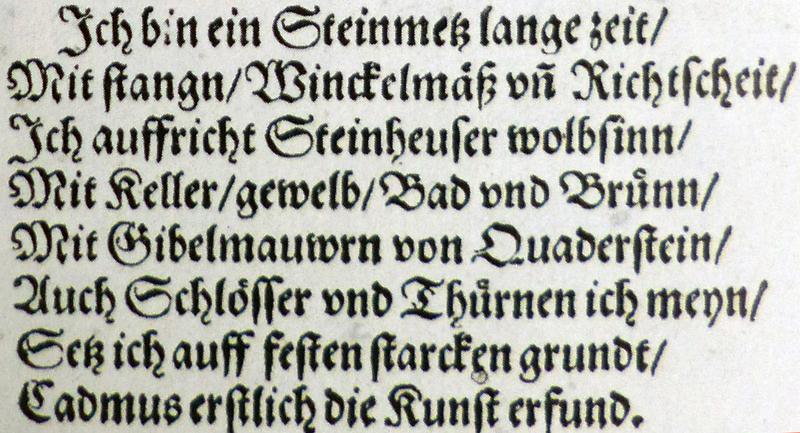 Ich bin ein Steinmetz lange zeit/
Mit stangn/Winckelmäß vñ Richtscheit/
Ich auffricht Steinheuser wolbsinn/
Mit Keller/gewelb/Bad vnd Brůnn/
Mit Gibelmauwrn von Quaderstein/
Auch Schlösser vnd Thůrnen ich meyn/
Setz ich auff festen starcken grundt/
Cadmus erstlich die Kunst erfund.